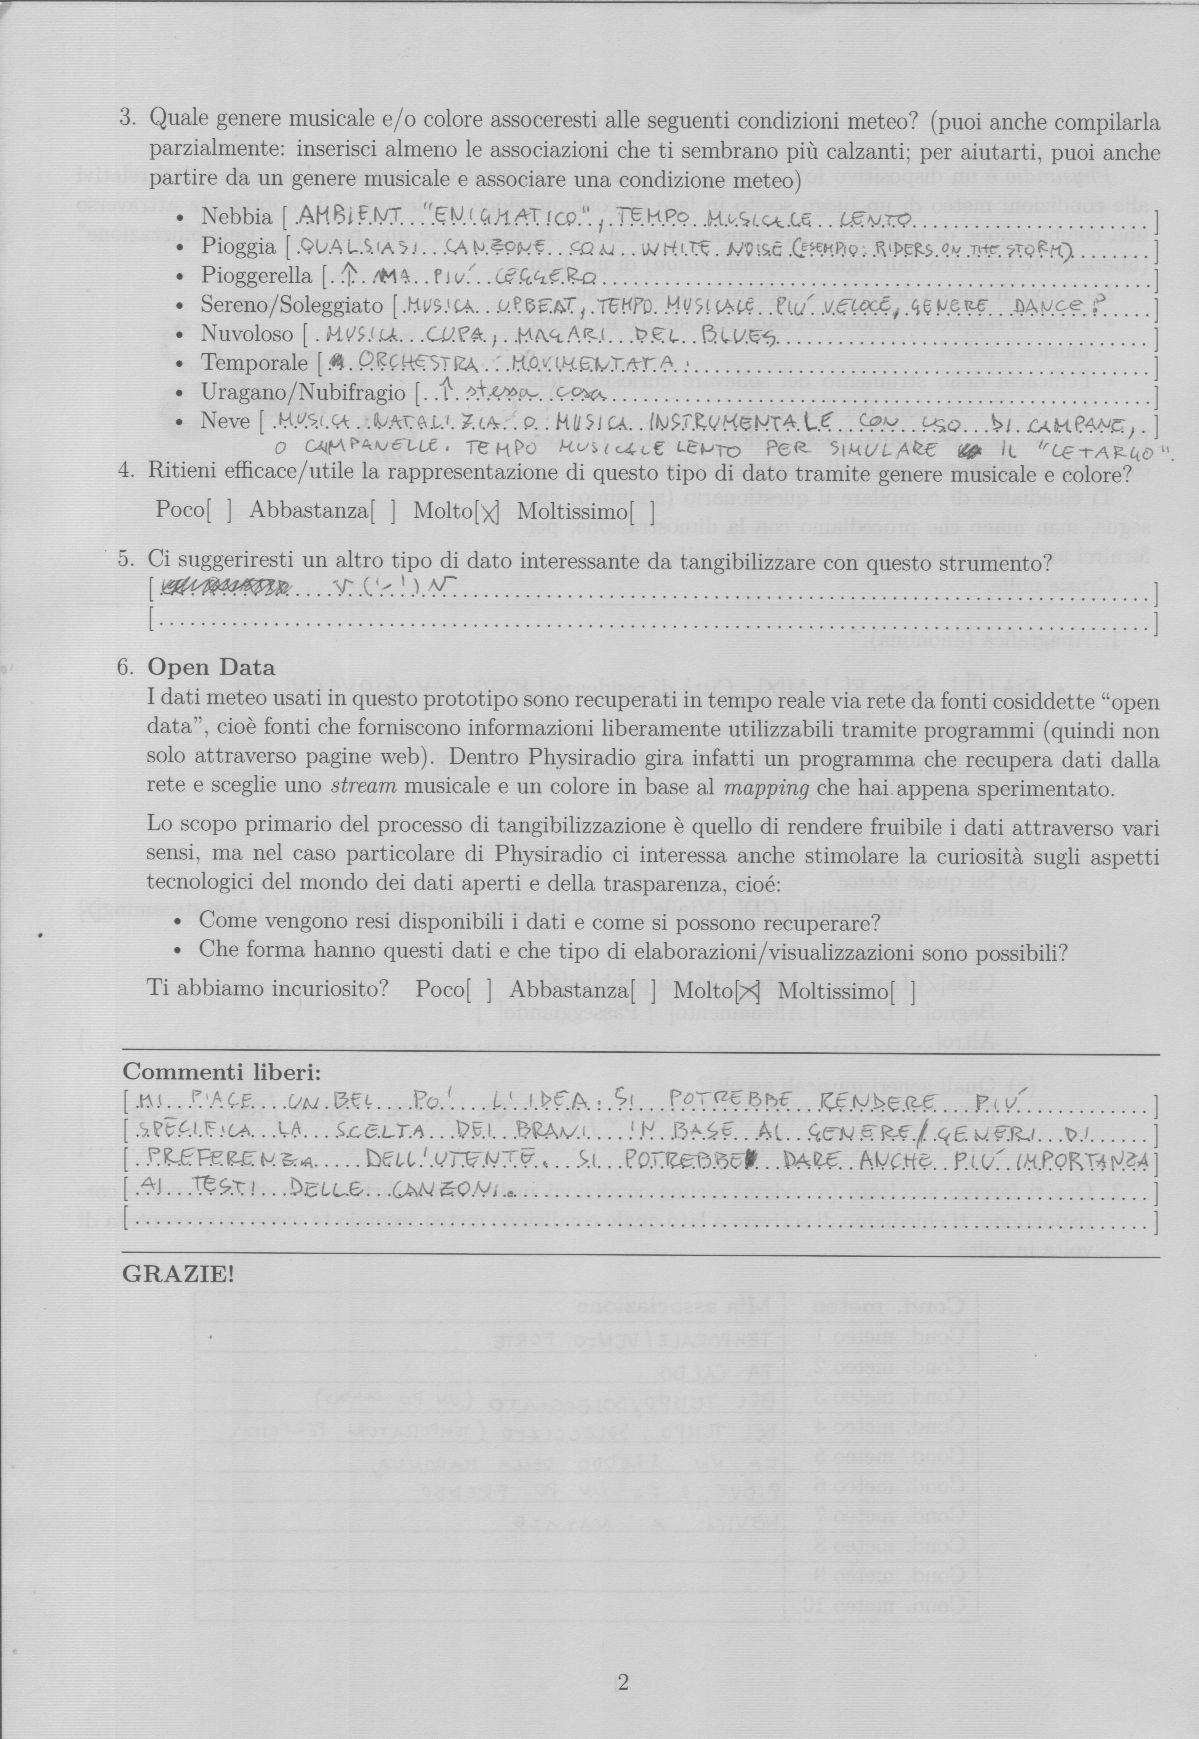 3. Quale genere musicale e/o colore assoceresti alle seguenti condizioni meteo? (puoi anche compilarla
parzialmente: inserisci almeno le associazioni che ti sembrano più calzanti; per aiutarti, puoi anche
partire da un genere musicale e associare una condizione meteo)
• Nebbia [ AMBIENT "ENIGMATICO", TEMPO MUSICALE LENTO ]
• Pioggia [ QUALSIASI CANZONE CON WHITE NOISE (ESEMPIO: RIDERS ON THE STORM) ]
• Pioggerella [ ↑ MA PIU' LEGGERO ]
• Sereno/Soleggiato [ MUSICA UPBEAT, TEMPO MUSICALE PIU' VELOCE, GENERE DANCE? ]
• Nuvoloso [ MUSICA CUPA, MAGARI DEL BLUES ]
• Temporale [ ORCHESTRA MOVIMENTATA. ]
• Uragano/Nubifragio [ ↑ stessa cosa ]
• Neve [ MUSICA NATALIZIA O MUSICA INSTRUMENTALE CON USO DI CAMPANE, ]
O CAMPANELLE. TEMPO MUSICALE LENTO PER SIMULARE IL "LETARGO".
4. Ritieni efficace/utile la rappresentazione di questo tipo di dato tramite genere musicale e colore?
Poco[ ] Abbastanza[ ] Molto[X] Moltissimo[ ]
5. Ci suggeriresti un altro tipo di dato interessante da tangibilizzare con questo strumento?
[ ]
[ ]
6. Open Data
I dati meteo usati in questo prototipo sono recuperati in tempo reale via rete da fonti cosiddette “open
data”, cioè fonti che forniscono informazioni liberamente utilizzabili tramite programmi (quindi non
solo attraverso pagine web). Dentro Physiradio gira infatti un programma che recupera dati dalla
rete e sceglie uno stream musicale e un colore in base al mapping che hai appena sperimentato.
Lo scopo primario del processo di tangibilizzazione è quello di rendere fruibile i dati attraverso vari
sensi, ma nel caso particolare di Physiradio ci interessa anche stimolare la curiosità sugli aspetti
tecnologici del mondo dei dati aperti e della trasparenza, cioé:
• Come vengono resi disponibili i dati e come si possono recuperare?
• Che forma hanno questi dati e che tipo di elaborazioni/visualizzazioni sono possibili?
Ti abbiamo incuriosito? Poco[ ] Abbastanza[ ] Molto[X] Moltissimo[ ]
Commenti liberi:
[ MI PIACE UN BEL PO' L'IDEA. SI POTREBBE RENDERE PIU' ]
[ SPECIFICA LA SCELTA DEI BRANI IN BASE AL GENERE/GENERI DI ]
[ PREFERENZA DELL'UTENTE. SI POTREBBE DARE ANCHE PIU' IMPORTANZA ]
[ AI TESTI DELLE CANZONI. ]
[ ]
GRAZIE!
2